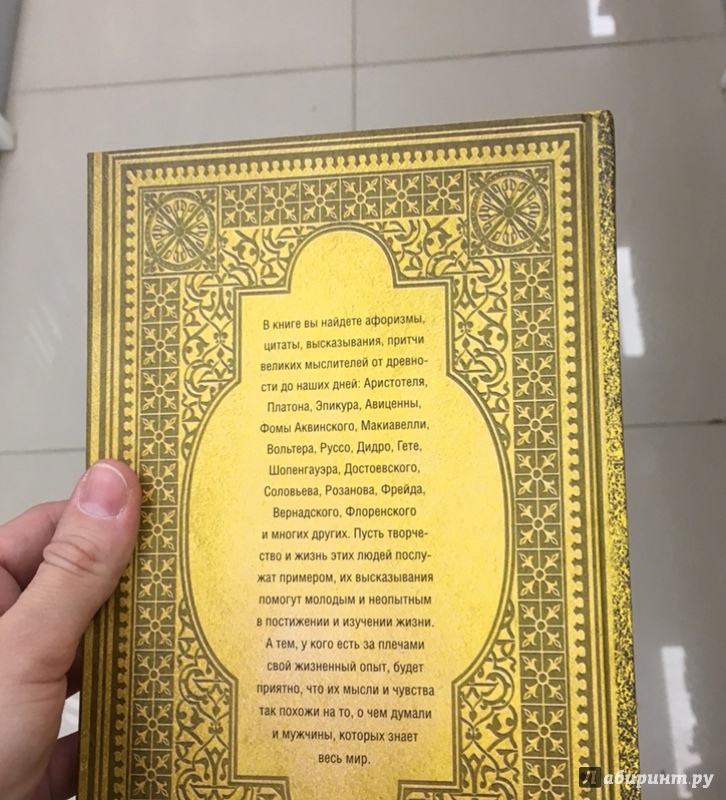 В книге вы найдете афоризмы,
цитаты, высказывания, притчи
великих мыслителей от древно-
сти до наших дней: Аристотеля,
Платона, Эпикура, Авиценны,
Фомы Аквинского, Макиавелли,
Вольтера, Руссо, Дидро, Гете,
Шопенгауэра, Достоевского,
Соловьева, Розанова, Фрейда,
Вернадского, Флоренского
и многих других. Пусть творче-
ство и жизнь этих людей послу-
жат примером, их высказывания
помогут молодым и неопытным
в постижении и изучении жизни.
А тем, у кого есть за плечами
свой жизненный опыт, будет
приятно, что их мысли и чувства
так похожи на то, о чем думали
и мужчины, которых знает
весь мир.
Лабиринт.ру